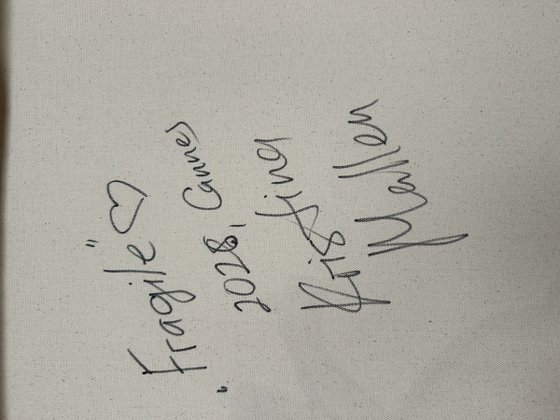 "Fragile" ♡
2028, Cannes
Kristina
Mallen